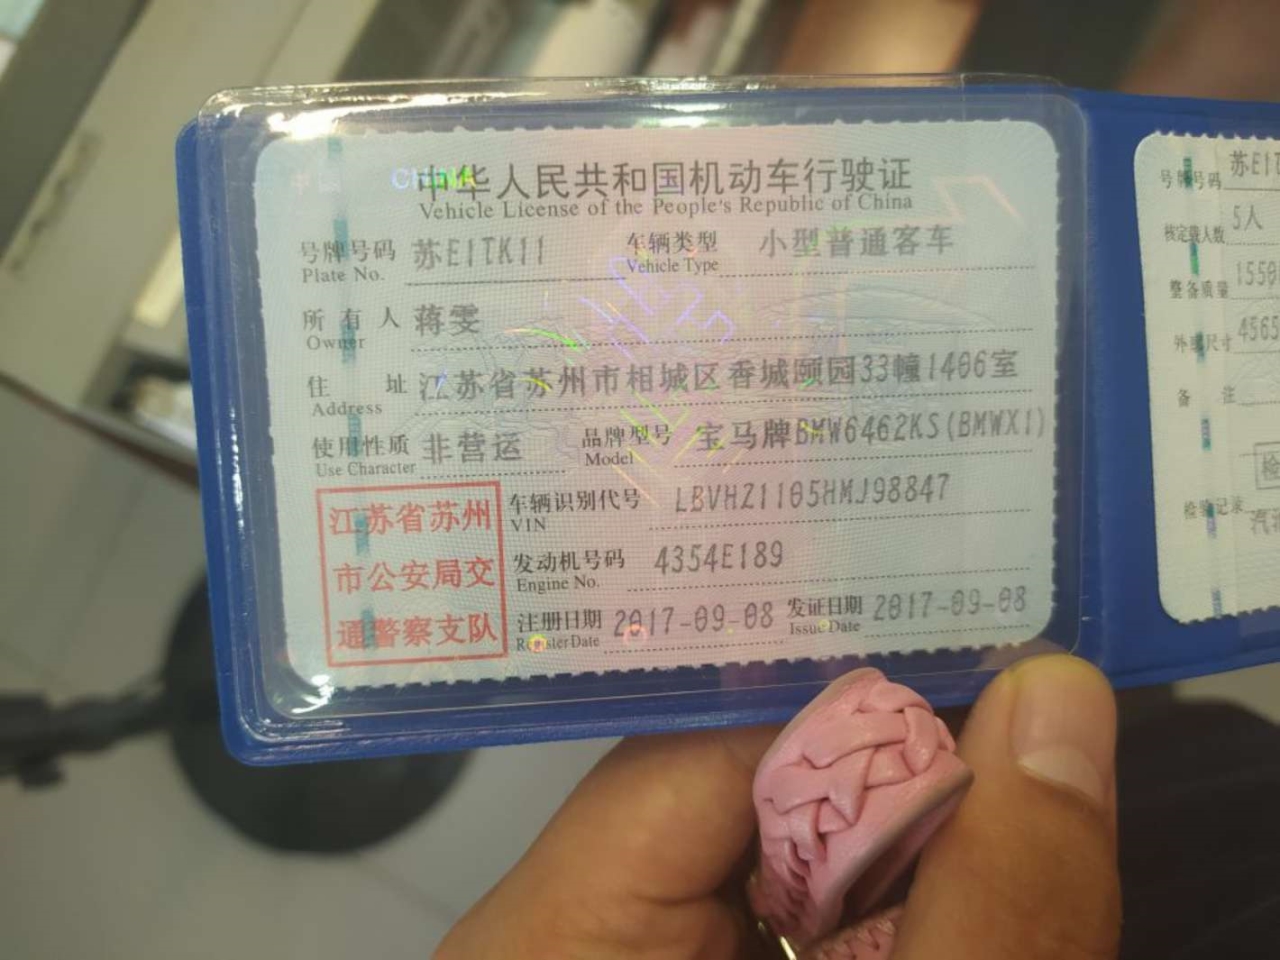 中华人民共和国机动车行驶证
Vehicle License of the People's Republic of China
号牌号码 苏E1TK11 车辆类型 小型普通客车
Plate No. Vehicle Type
所有人 蒋雯
Owner
住址 江苏省苏州市相城区香城颐园33幢1406室
Address
使用性质 非营运 品牌型号 宝马牌BMW6462KS(BMWX1)
Use Character Model
江苏省苏州
市公安局交
通警察支队
车辆识别代号 LBVHZ1105HMJ98847
VIN
发动机号码 4354E189
Engine No.
注册日期 2017-09-08 发证日期 2017-09-08
Register Date Issue Date
号牌号码 苏E1T
核定载人数 5人
整备质量 1550
外廓尺寸 4565
备注
检验记录